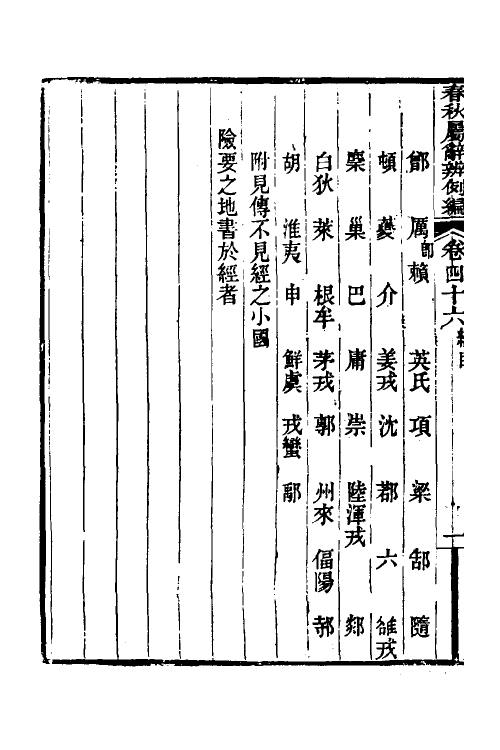 春秋屬辭辨例編 卷四十六 一
鄫 厲即賴 英氏 項 梁 郜 隨
頓 夔 介 姜戎 沈 鄀 六 雒戎
麇 巢 巴 庸 崇 陸渾戎 郯
白狄 萊 根牟 茅戎 郭 州來 偪陽 邿
胡 淮夷 申 鮮虞 戎蠻 鄅
附見傳不見經之小國
險要之地書於經者